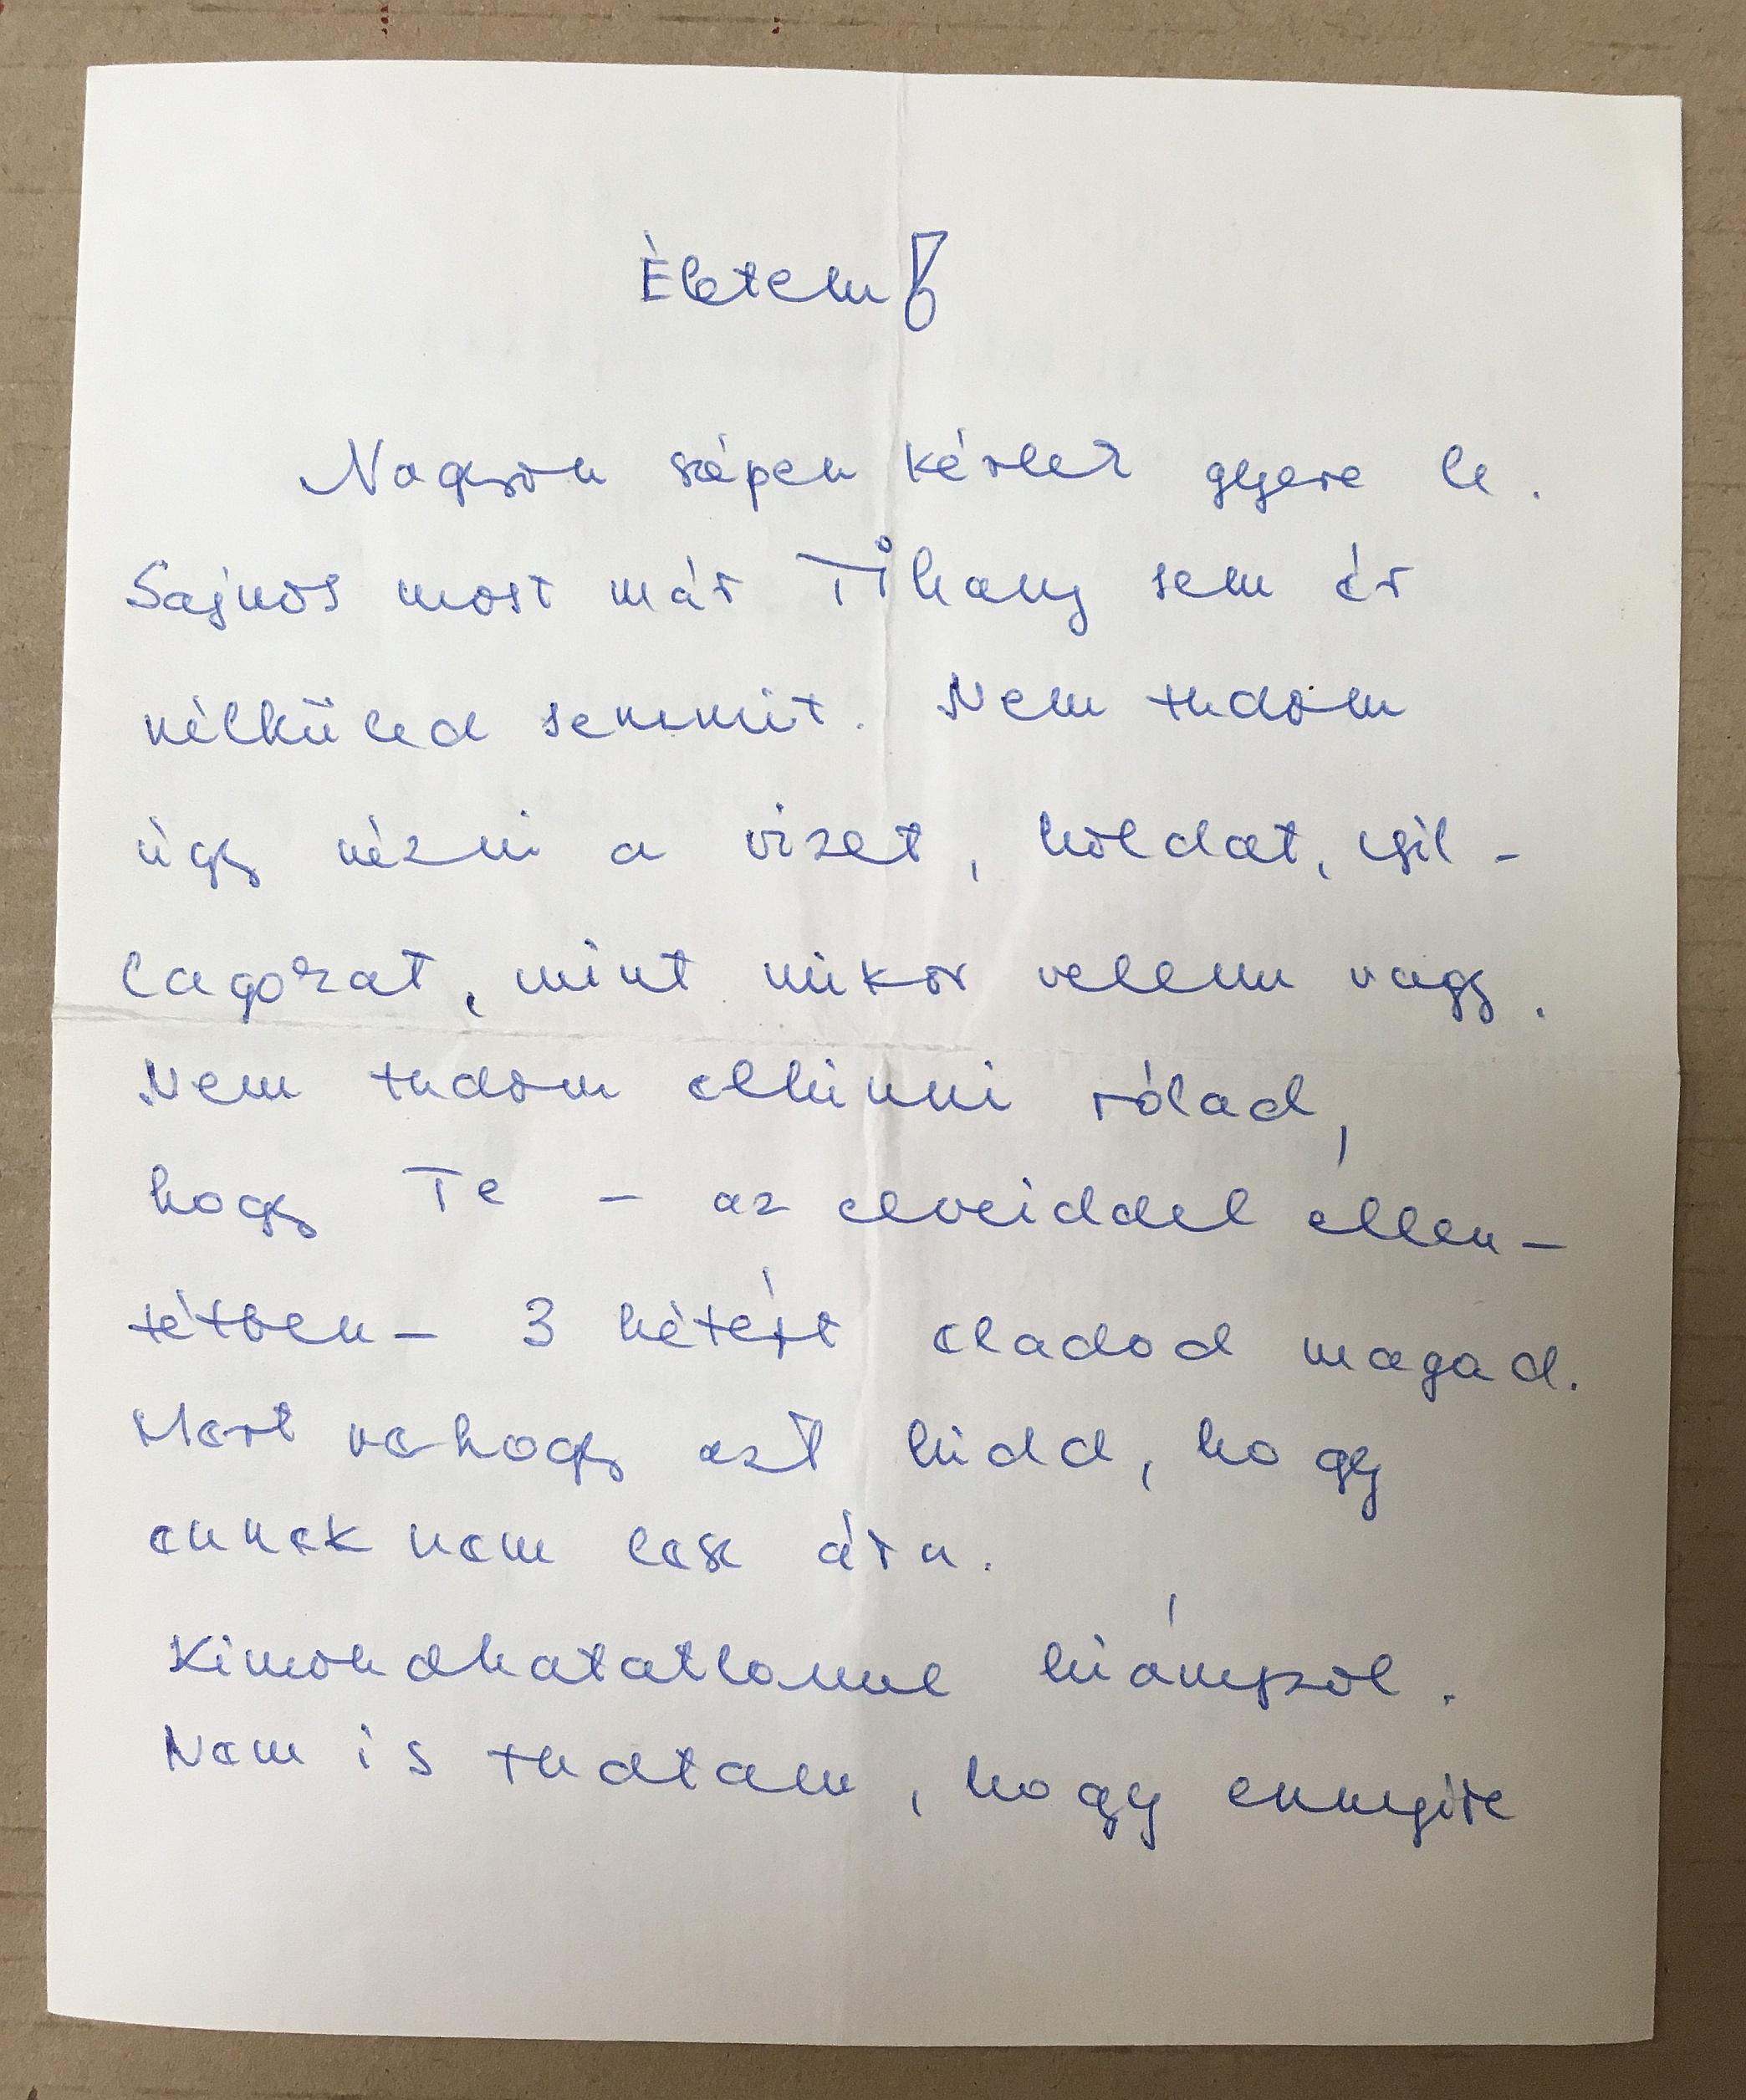 Életem!
Nagyon szépen kérlek gyere le.
Sajnos most már Tihany sem ér
nélküled semmit. Nem tudom
úgy nézni a vizet, holdat, csil-
lagokat, mint mikor velem vagy.
Nem tudom elhinni rólad,
hogy Te – az elveiddel ellen-
tétben – 3 hétért eladod magad.
Mert nehogy azt hidd, hogy
ennek nem lesz ára.
Kimondhatatlanul hiányzol.
Nem is tudtam, hogy ennyire